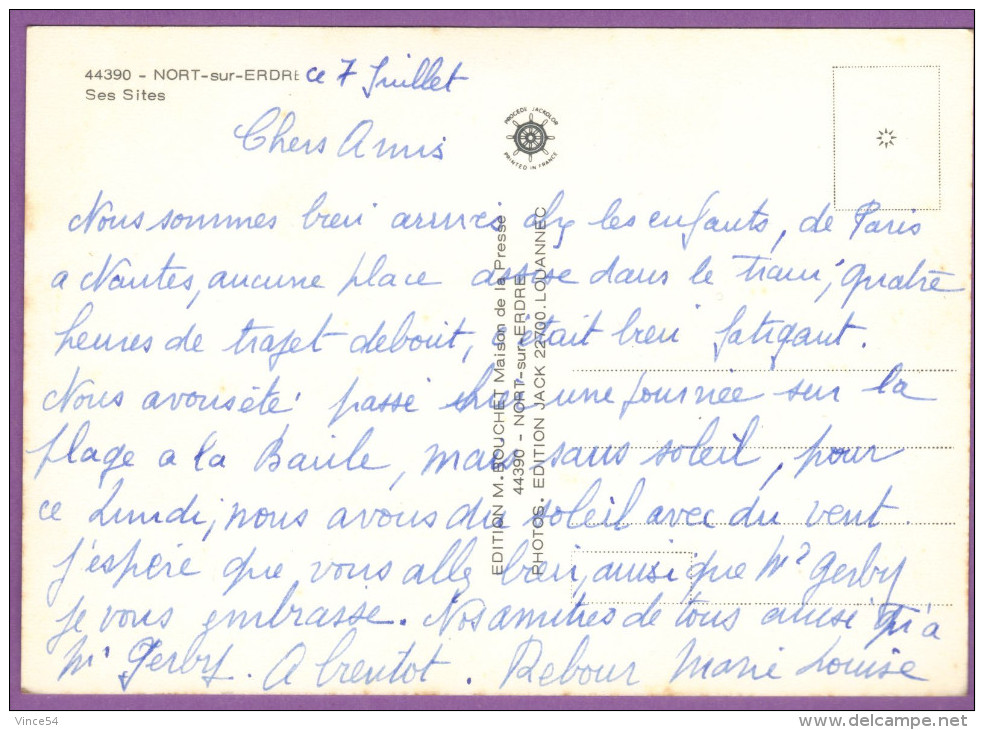 44390 - NORT-sur-ERDRE ce 7 Juillet
Ses Sites
PROCEDE JACKOLOR
PRINTED IN FRANCE
Chers Amis
Nous sommes bien arrivés chez les enfants, de Paris
a Nantes, aucune place assise dans le train, quatre
heures de trajet debout, c'était bien fatigant.
Nous avons été passé hier une journée sur la
plage a la Baule, mais sans soleil, pour
ce Lundi, nous avons du soleil avec du vent.
j'espère que vous allez bien, ainsi que Mr Gerby
je vous embrasse. Nos amitiés de tous ainsi qu'a
Mr Gerby. A bientot. Rebour Marie Louise
EDITION M. BOUCHET Maison de la Presse
44390 - NORT-sur-ERDRE
PHOTOS. EDITION JACK 22700.LOUANNEC
Vince54
http://www.delcampe.net